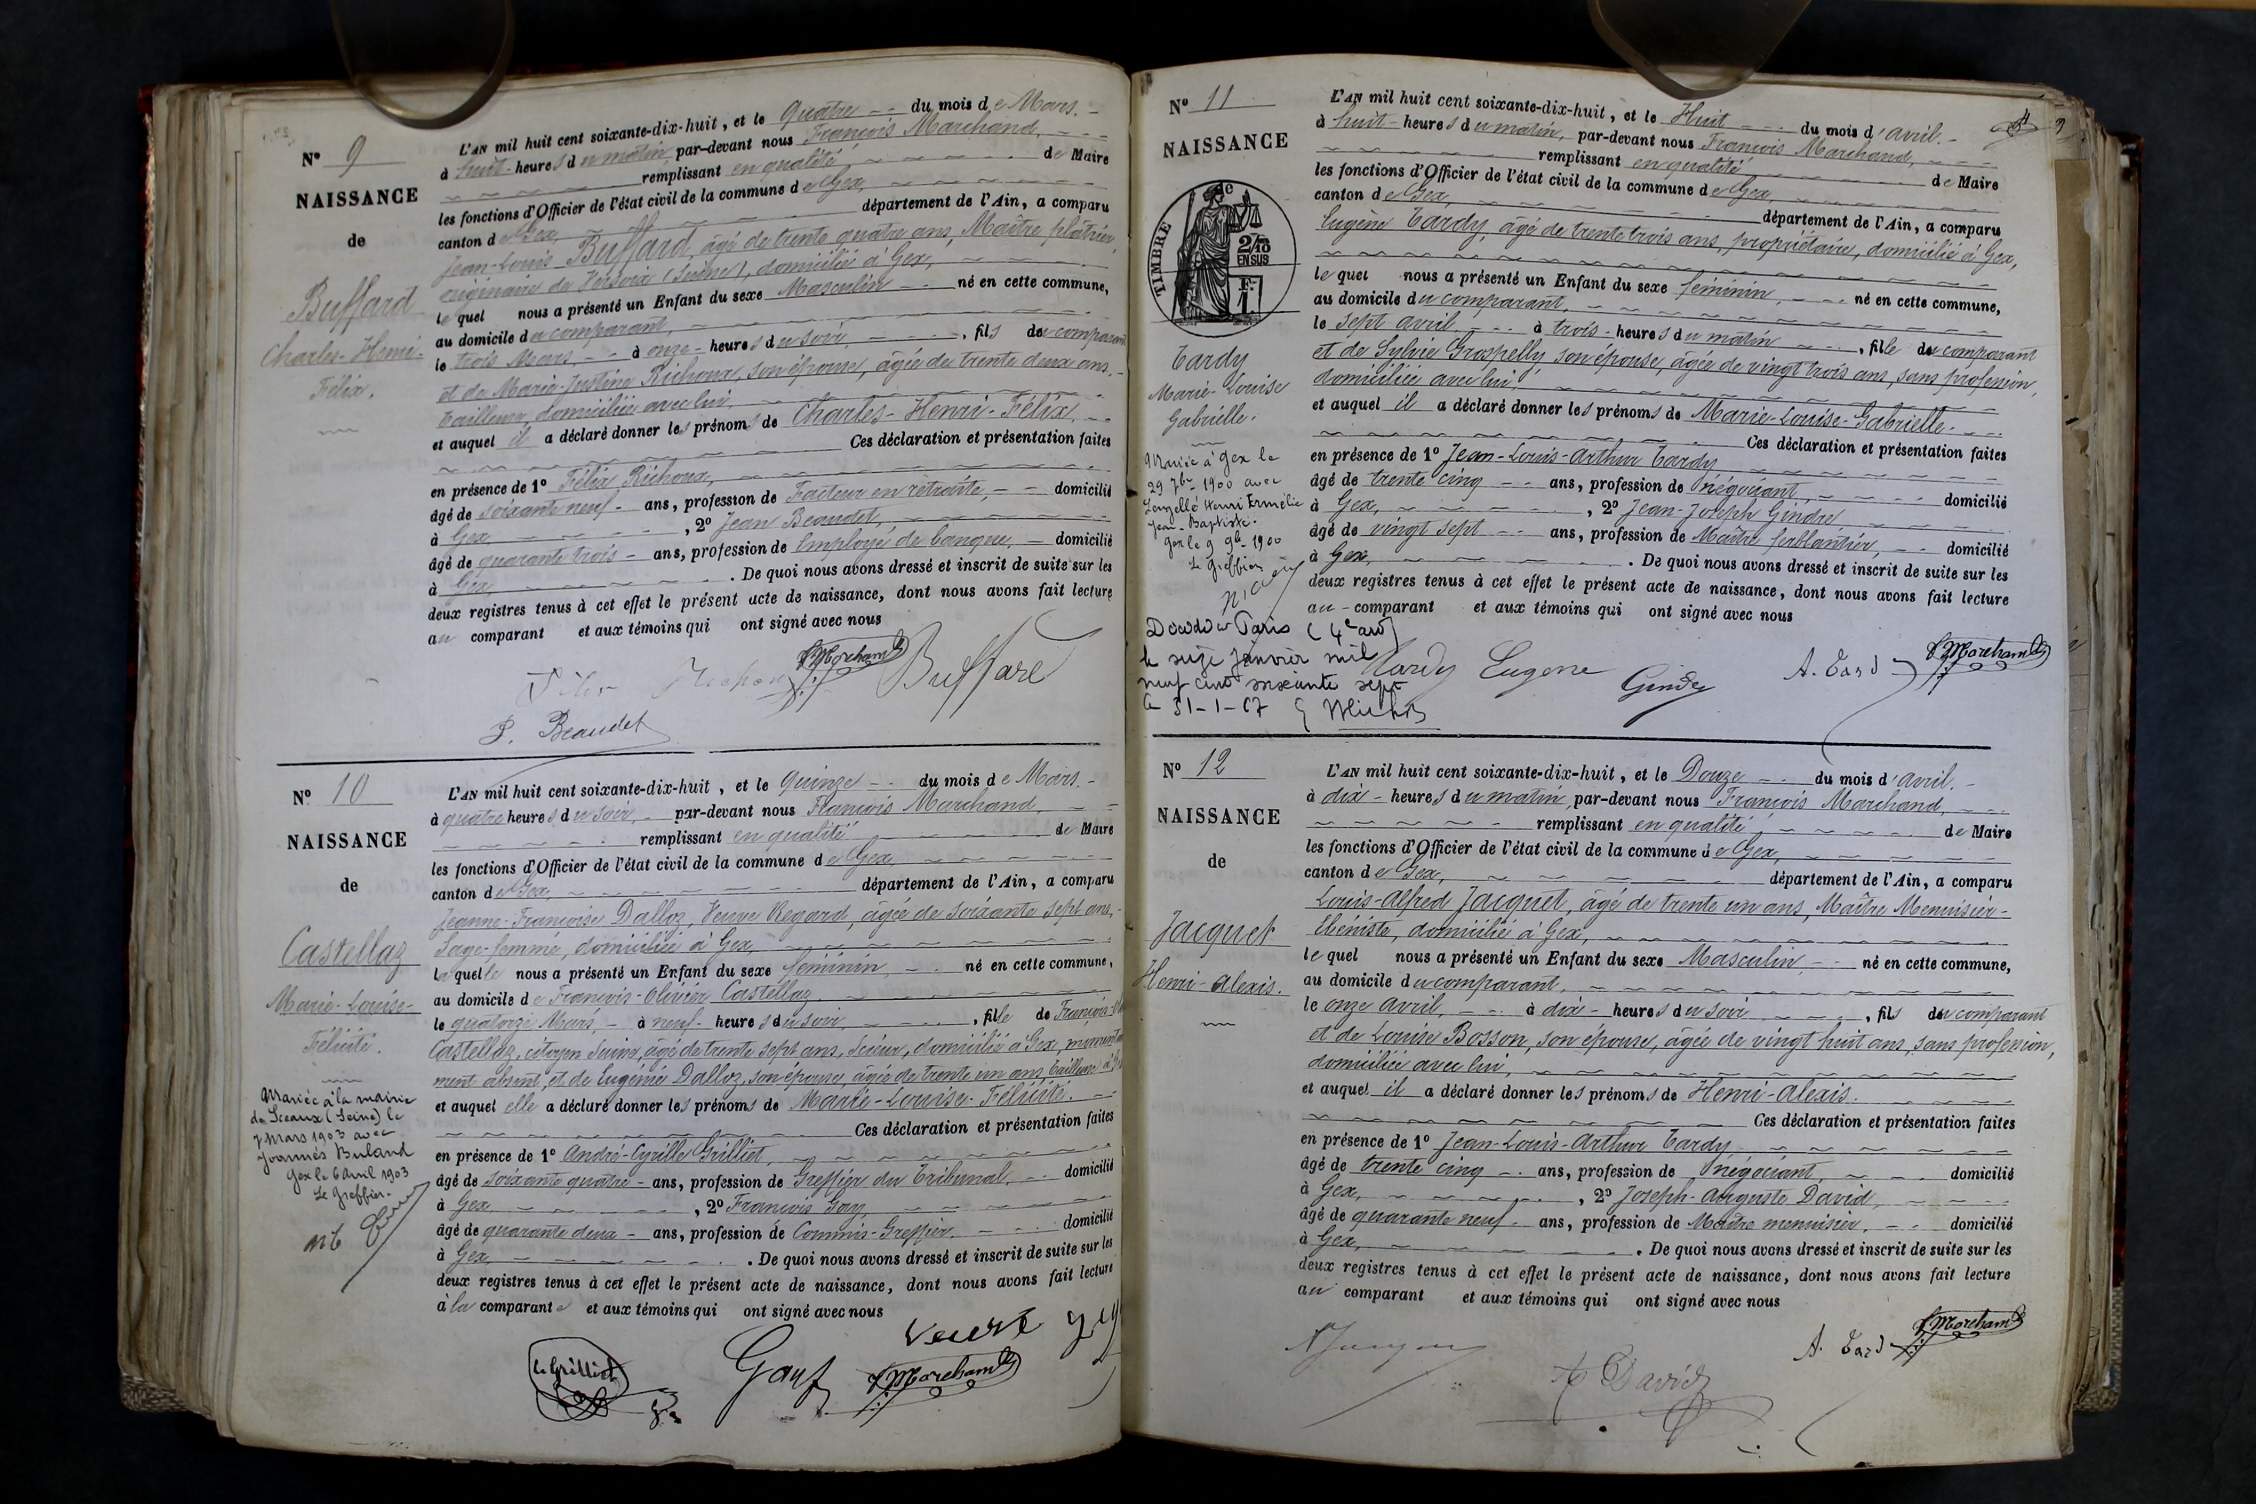 N° 9
NAISSANCE
de
Buffard
Charles-Henri-
Félix.
L'AN mil huit cent soixante-dix-huit, et le quatre du mois de Mars.
à huit heures du matin, par-devant nous François Marchand,
remplissant en qualité de Maire
les fonctions d'Officier de l'état civil de la commune de Gex,
canton de Gex, département de l'Ain, a comparu
Jean-Louis Buffard, âgé de trente quatre ans, Maître plâtrier,
originaire de Versoix (Suisse), domicilié à Gex,
le quel nous a présenté un Enfant du sexe Masculin né en cette commune,
au domicile du comparant,
le trois Mars à onze heures du soir, fils du comparant
et de Marie-Justine Richoux, son épouse, âgée de trente deux ans,
tailleuse, domiciliée avec lui,
et auquel il a déclaré donner les prénoms de Charles-Henri-Félix.
Ces déclaration et présentation faites
en présence de 1° Félix Richoux,
âgé de soixante neuf ans, profession de Facteur en retraite, domicilié
à Gex, 2° Jean Beaudet,
âgé de quarante trois ans, profession de Employé de banque, domicilié
à Gex, . De quoi nous avons dressé et inscrit de suite sur les
deux registres tenus à cet effet le présent acte de naissance, dont nous avons fait lecture
au comparant et aux témoins qui ont signé avec nous
F Marchand
Buffard
P. Beaudet
N° 10
NAISSANCE
de
Castellaz
Marie-Louise-
Félicité.
Mariée à la mairie
de Sceaux (Seine) le
7 Mars 1903 avec
Joannès Buland
Gex le 6 Avril 1903
Le Greffier.
L'AN mil huit cent soixante-dix-huit, et le quinze du mois de Mars.
à quatre heures du soir, par-devant nous François Marchand
remplissant en qualité de Maire
les fonctions d'Officier de l'état civil de la commune de Gex,
canton de Gex, département de l'Ain, a comparu
Jeanne-Françoise Dalloz, Veuve Regard, âgée de soixante sept ans,
Sage-femme, domiciliée à Gex,
la quelle nous a présenté un Enfant du sexe féminin né en cette commune,
au domicile de François-Olivier Castellaz,
le quatorze Mars, à neuf heures du soir, fille de François-
Castellaz, citoyen Suisse, âgé de trente sept ans, Scieur, domicilié à Gex,
ment absent, et de Eugénie Dalloz, son épouse, âgée de trente un ans, tailleuse
et auquel elle a déclaré donner les prénoms de Marie-Louise-Félicité.
Ces déclaration et présentation faites
en présence de 1° André-Cyrille Grilliet,
âgé de soixante quatre ans, profession de Greffier du Tribunal, domicilié
à Gex, 2° François Gay,
âgé de quarante deux ans, profession de Commis-Greffier. domicilié
à Gex, . De quoi nous avons dressé et inscrit de suite sur les
deux registres tenus à cet effet le présent acte de naissance, dont nous avons fait lecture
à la comparante et aux témoins qui ont signé avec nous
Grilliet
Gay
F Marchand
N° 11
NAISSANCE
TIMBRE
2/10
EN SUS
Tardy
Marie-Louise
Gabrielle.
Mariée à Gex le
29 7bre 1900 avec
Henri
Jean-Baptiste.
Gex le 9 9bre 1900
Le Greffier
Décédée Paris (4e arr)
le seize janvier mil
neuf cent soixante sept
le 31-1-67
L'AN mil huit cent soixante-dix-huit, et le Huit du mois d'avril.
à huit heures du matin, par-devant nous François Marchand,
remplissant en qualité de Maire
les fonctions d'Officier de l'état civil de la commune de Gex,
canton de Gex, département de l'Ain, a comparu
Eugène Tardy, âgé de trente trois ans, propriétaire, domicilié à Gex,
le quel nous a présenté un Enfant du sexe féminin, né en cette commune,
au domicile du comparant,
le sept avril à trois heures du matin, fille du comparant
et de Sylvie Grospelly, son épouse, âgée de vingt trois ans, sans profession,
domiciliée avec lui,
et auquel il a déclaré donner les prénoms de Marie-Louise-Gabrielle.
Ces déclaration et présentation faites
en présence de 1° Jean-Louis-Arthur Tardy
âgé de trente cinq ans, profession de Négociant, domicilié
à Gex, 2° Jean-Joseph Gindre
âgé de vingt sept ans, profession de Maître ferblantier, domicilié
à Gex, . De quoi nous avons dressé et inscrit de suite sur les
deux registres tenus à cet effet le présent acte de naissance, dont nous avons fait lecture
au comparant et aux témoins qui ont signé avec nous
Tardy Eugene
Gindre
A. Tardy
F Marchand
N° 12
NAISSANCE
de
Jacquet
Henri-Alexis.
L'AN mil huit cent soixante-dix-huit, et le Douze du mois d'avril.
à dix heures du matin, par-devant nous François Marchand,
remplissant en qualité de Maire
les fonctions d'Officier de l'état civil de la commune de Gex,
canton de Gex, département de l'Ain, a comparu
Louis-Alfred Jacquet, âgé de trente un ans, Maître Menuisier-
Ebéniste, domicilié à Gex,
le quel nous a présenté un Enfant du sexe Masculin né en cette commune,
au domicile du comparant,
le onze avril, à dix heures du soir, fils du comparant
et de Louise Bosson, son épouse, âgée de vingt huit ans, sans profession,
domiciliée avec lui,
et auquel il a déclaré donner les prénoms de Henri-Alexis.
Ces déclaration et présentation faites
en présence de 1° Jean-Louis-Arthur Tardy
âgé de trente cinq ans, profession de Négociant, domicilié
à Gex, 2° Joseph-Auguste David,
âgé de quarante neuf ans, profession de Maître menuisier, domicilié
à Gex, . De quoi nous avons dressé et inscrit de suite sur les
deux registres tenus à cet effet le présent acte de naissance, dont nous avons fait lecture
au comparant et aux témoins qui ont signé avec nous
David
A. Tardy
F Marchand